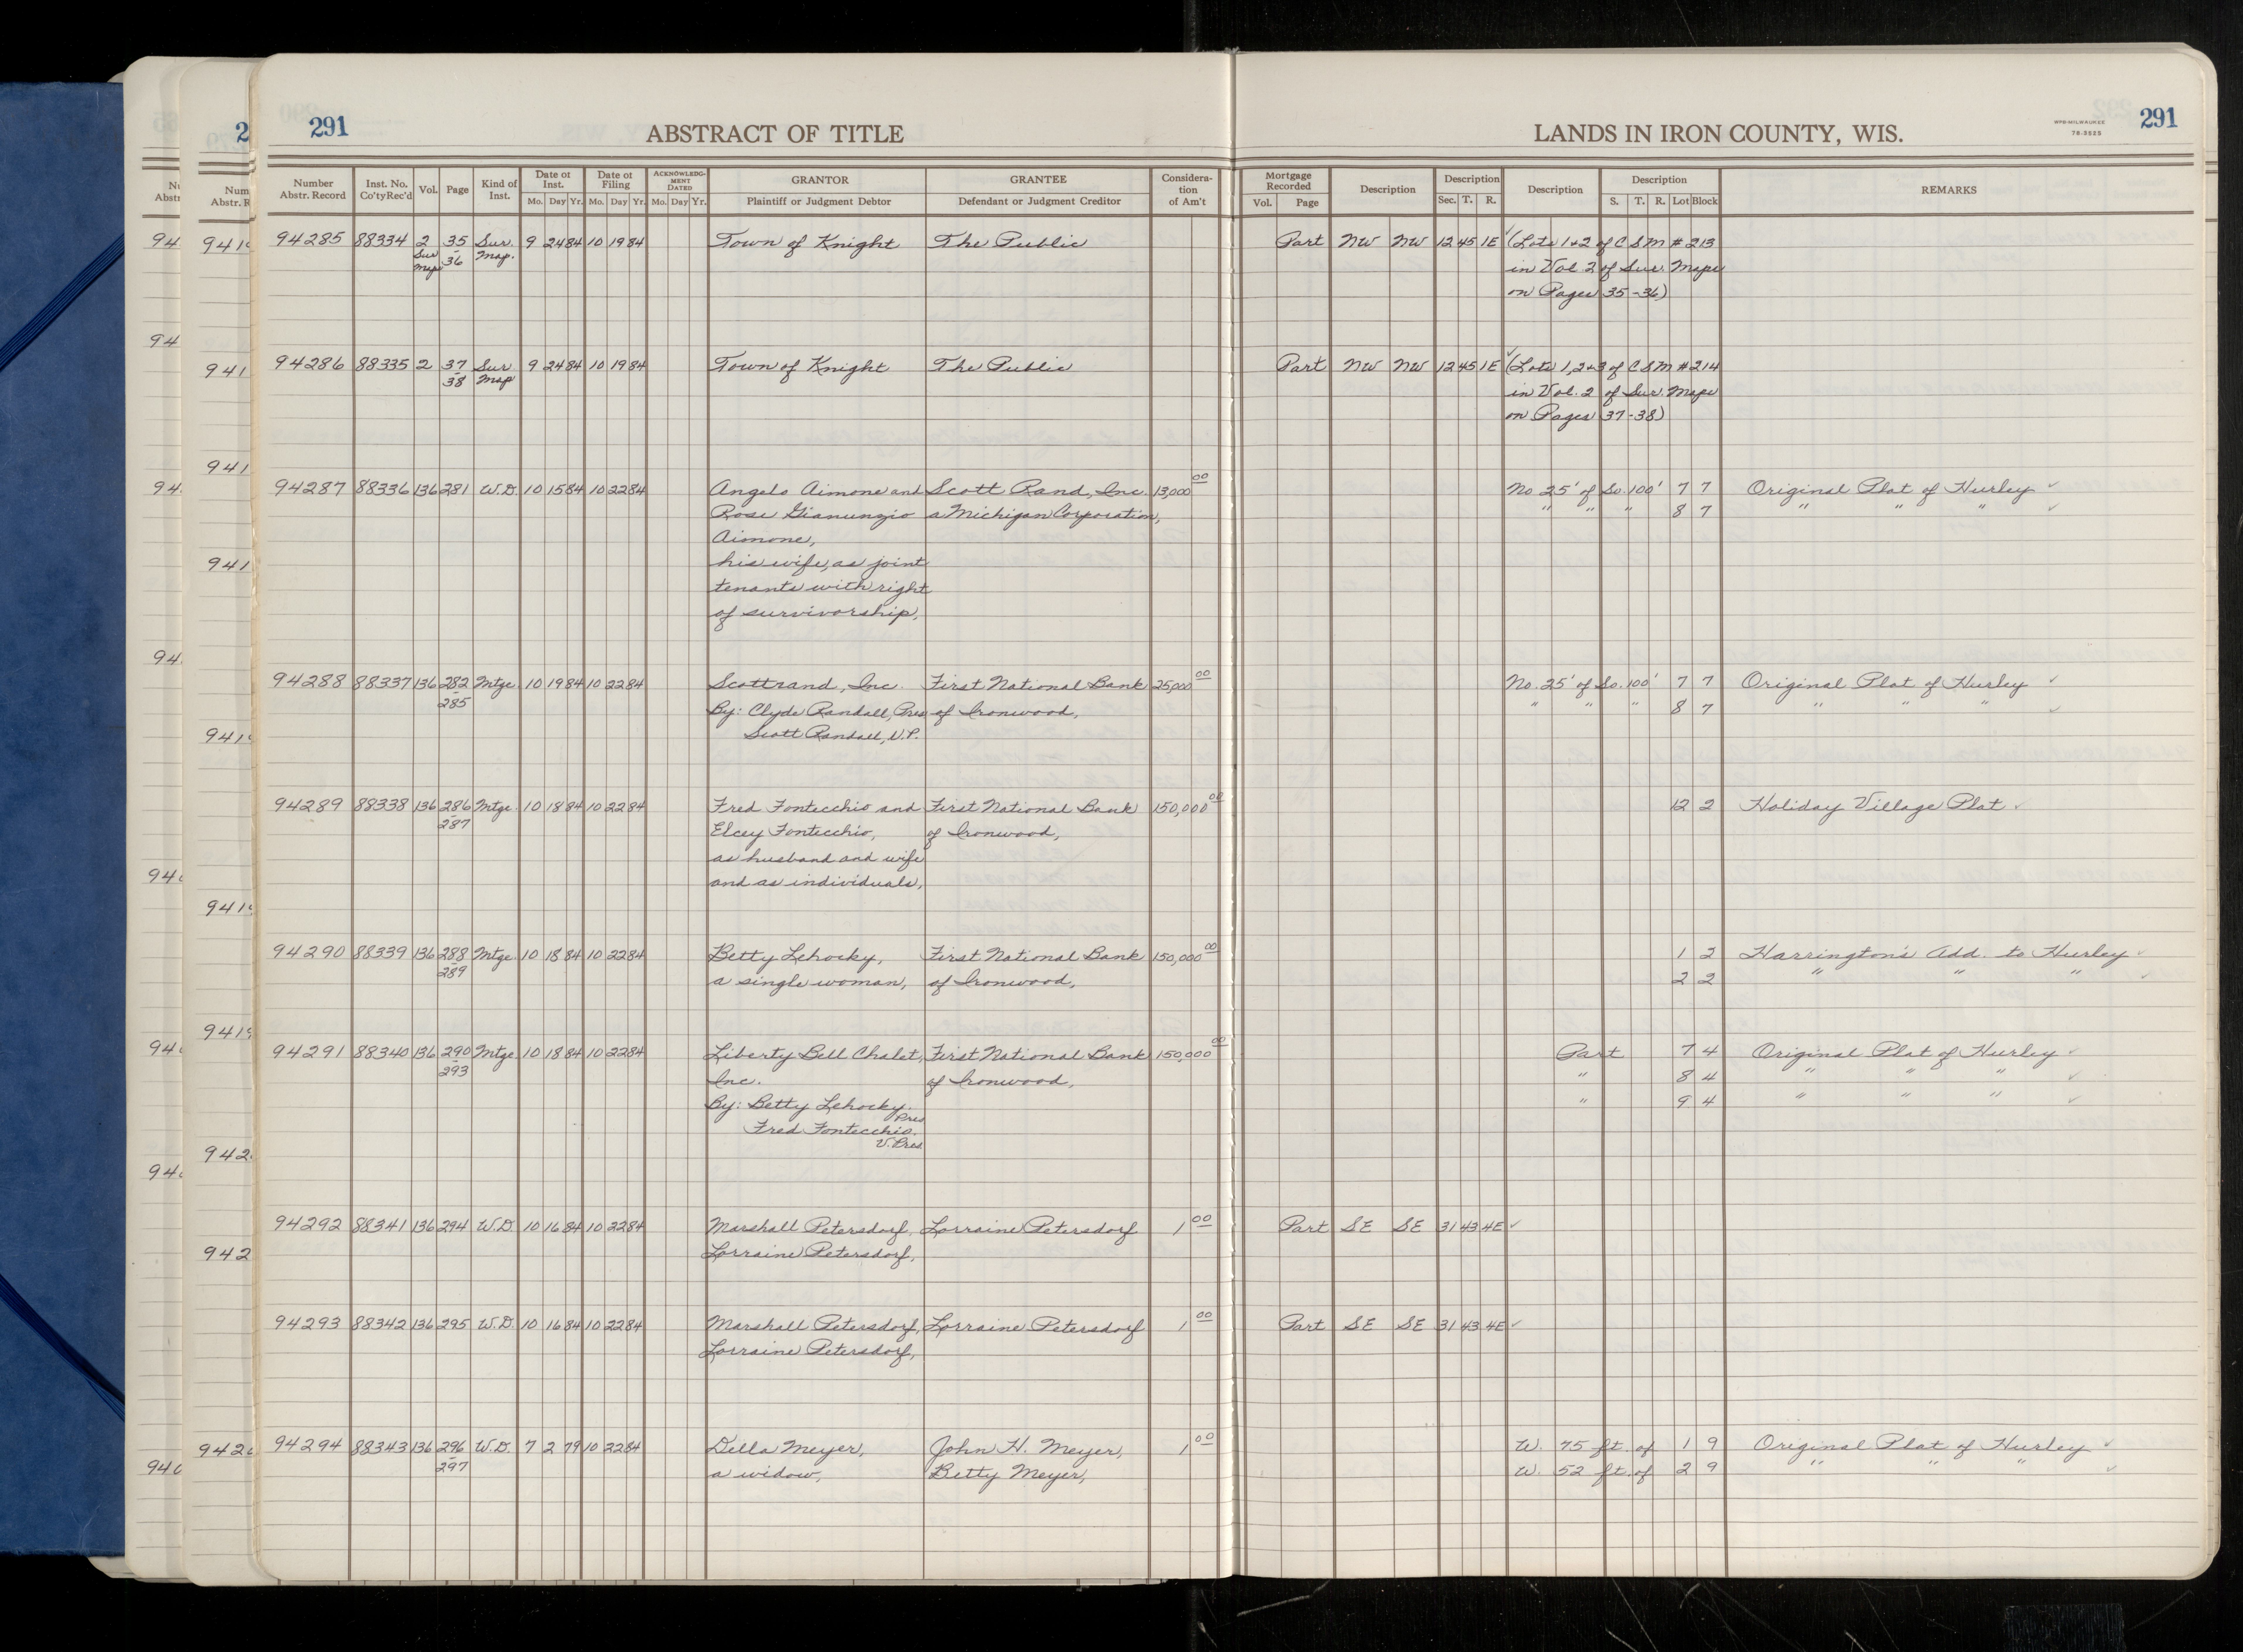 291
ABSTRACT OF TITLE
LANDS IN IRON COUNTY, WIS.
WPB-MILWAUKEE
78-3525
291
Number Abstr. Record Inst. No. Co'ty Rec'd Vol. Page Kind of Inst. Date of Inst. Mo. Day Yr. Date of Filing Mo. Day Yr. ACKNOWLEDGMENT DATED Mo. Day Yr. GRANTOR Plaintiff or Judgment Debtor GRANTEE Defendant or Judgment Creditor Consideration of Am't Mortgage Recorded Vol. Page Description Description Sec. T. R. Description Description S. T. R. Lot Block REMARKS
94285 88334 2 35 Sur. 9 24 84 10 19 84 Town of Knight The Public Part NW NW 12 45 1E (Lots 1+2 of C S M # 213
Sur Maps - 36 Map. in Vol. 2 of Sur. Maps
on Pages 35-36)
94286 88335 2 37 Sur 9 24 84 10 19 84 Town of Knight The Public Part NW NW 12 45 1E (Lots 1,2+3 of C S M # 214
- 38 Map in Vol. 2 of Sur. Maps
on Pages 37-38)
94287 88336 136 281 W.D. 10 15 84 10 22 84 Angelo Aimone and Scott Rand, Inc. 13,000 00 No. 25' of So. 100' 7 7 Original Plat of Hurley ✓
Rose Gianunzio a Michigan Corporation, " " " 8 7 " " " ✓
Aimone,
his wife, as joint
tenants with right
of survivorship,
94288 88337 136 282 Mtge. 10 19 84 10 22 84 Scottrand, Inc. First National Bank 25,000 00 No. 25' of So. 100' 7 7 Original Plat of Hurley ✓
- 285 By: Clyde Randall, Pres of Ironwood, " " " 8 7 " " " ✓
Scott Randall, V.P.
94289 88338 136 286 Mtge. 10 18 84 10 22 84 Fred Fontecchio and First National Bank 150,000 00 12 2 Holiday Village Plat ✓
- 287 Elcey Fontecchio, of Ironwood,
as husband and wife
and as individuals,
94290 88339 136 288 Mtge. 10 18 84 10 22 84 Betty Lehocky, First National Bank 150,000 00 1 2 Harrington's Add. to Hurley ✓
- 289 a single woman, of Ironwood, 2 2 " " " ✓
94291 88340 136 290 Mtge. 10 18 84 10 22 84 Liberty Bell Chalet, First National Bank 150,000 00 Part 7 4 Original Plat of Hurley ✓
- 293 Inc. of Ironwood, " 8 4 " " " ✓
By: Betty Lehocky. Pres " 9 4 " " " ✓
Fred Fontecchio.
V. Pres
94292 88341 136 294 W.D. 10 16 84 10 22 84 Marshall Petersdorf, Lorraine Petersdorf 1 00 Part SE SE 31 43 4E ✓
Lorraine Petersdorf,
94293 88342 136 295 W.D. 10 16 84 10 22 84 Marshall Petersdorf, Lorraine Petersdorf 1 00 Part SE SE 31 43 4E ✓
Lorraine Petersdorf,
94294 88343 136 296 W.D. 7 2 79 10 22 84 Della Meyer, John H. Meyer, 1 00 W. 75 ft. of 1 9 Original Plat of Hurley ✓
- 297 a widow, Betty Meyer, W. 52 ft. of 2 9 " " " ✓